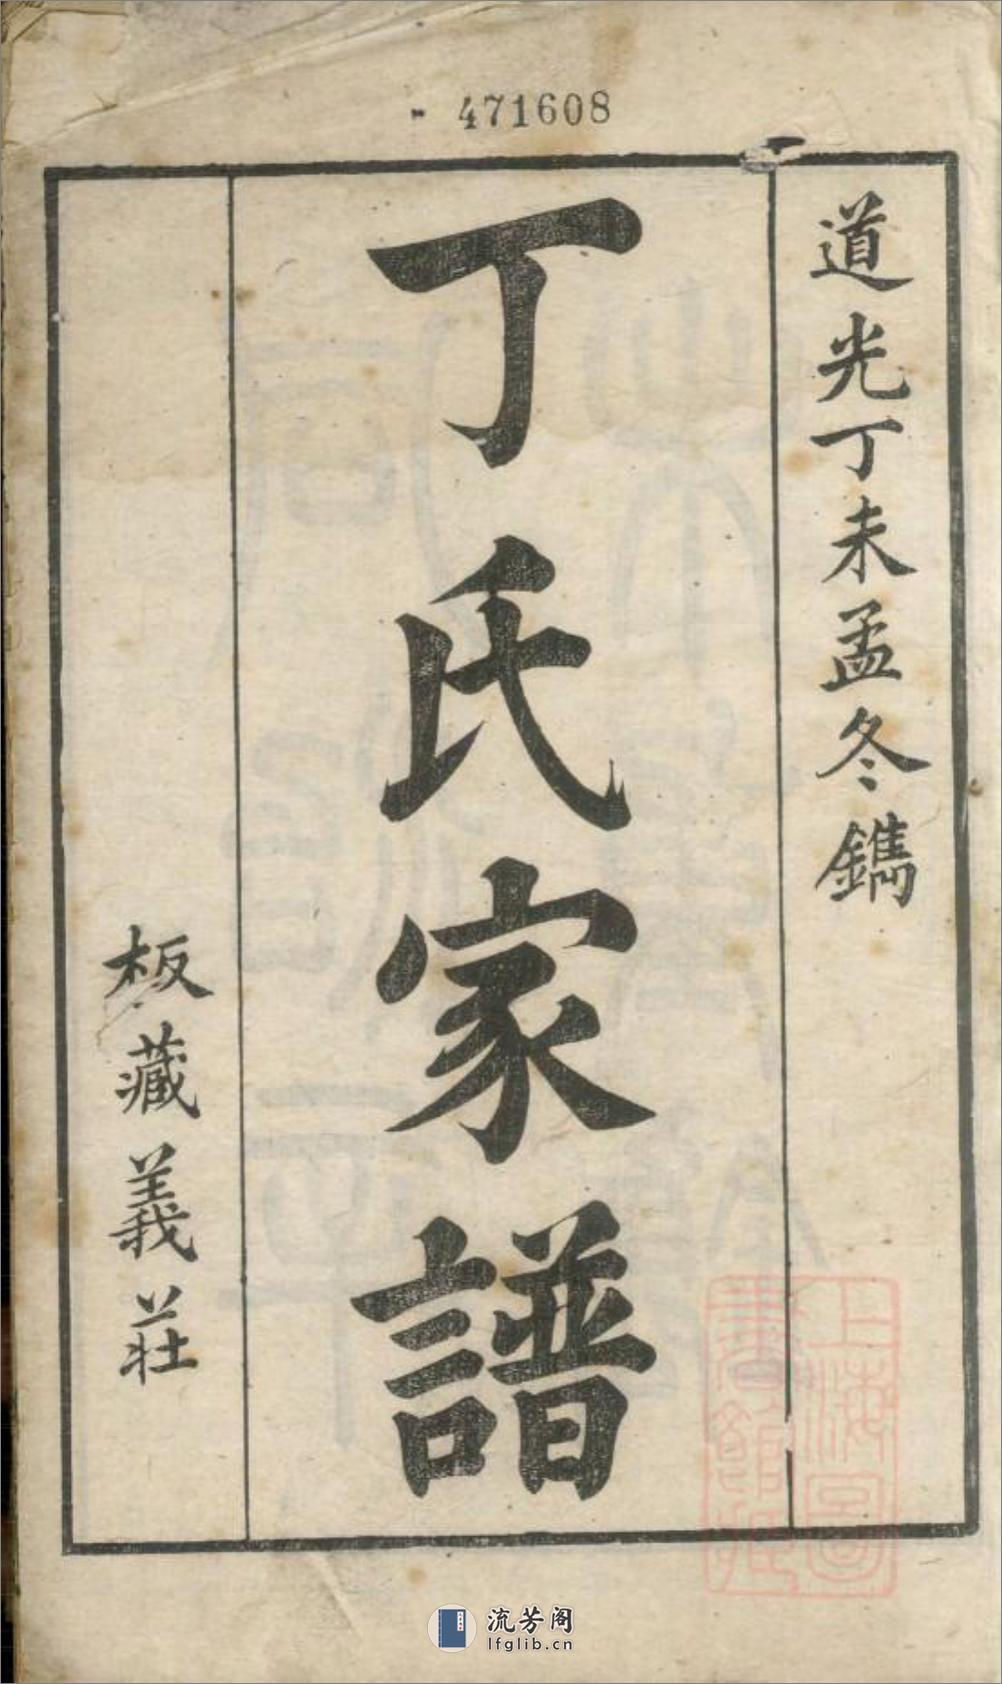 - 471608
道光丁未孟冬鐫
丁氏家譜
板藏義莊
上海圖
書館藏
流芳阁
lfglib.cn